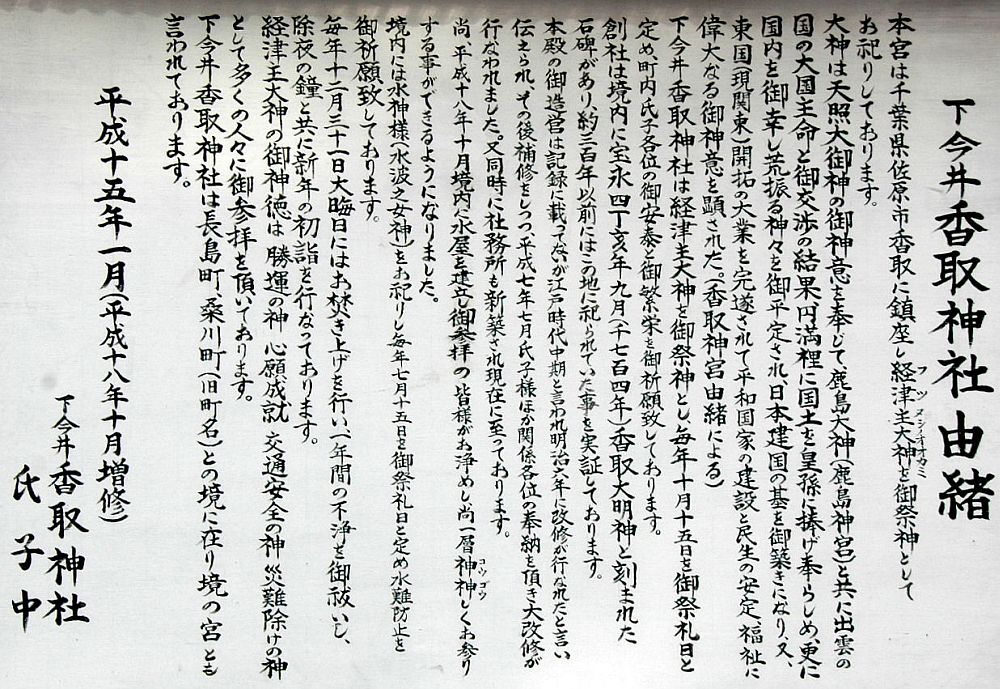 下今井香取神社由緒
本宮は千葉県佐原市香取に鎮座し経津主大神を御祭神として
フツヌシオオカミ
お祀りしております。
大神は天照大御神の御神意を奉じて、鹿島大神(鹿島神宮)と共に出雲の
国の大国主命と御交渉の結果、円満裡に国土を皇孫に捧げ奉らしめ、更に
国内を御幸し荒振る神々を御平定され、日本建国の基を御築きになり、又、
東国(現関東)開拓の大業を完遂されて平和国家の建設と民生の安定、福祉に
偉大なる御神意を顕された。(香取神宮由緒による)
下今井香取神社は経津主大神を御祭神とし、毎年十月十五日を御祭礼日と
定め町内氏子各位の御安泰と御繁栄を御祈願致しております。
創社は境内に宝永四丁亥年九月(千七百四年)香取大明神と刻まれた
石碑があり、約三百年以前にはこの地に祀られていた事を実証しております。
本殿の御造営は記録に載ってないが江戸時代中期と言われ明治六年に改修が行なれたと言い
伝えられ、その後補修をしつつ、平成七年七月氏子様ほか関係各位の奉納を頂き大改修が
行なわれました。又同時に社務所も新築され現在に至っております。
尚、平成十八年十月境内に水屋を建立し御参拝の皆様がお浄めし尚一層神神しくお参り
コウゴウ
する事ができるようになりました。
境内には水神様(水波之女神)をお祀りし毎年七月十五日を御祭礼日と定め水難防止を
御祈願致しております。
毎年十二月三十一日大晦日にはお焚き上げを行い、一年間の不浄を御祓いし、
除夜の鐘と共に新年の初詣を行なっております。
経津主大神の御神徳は 勝運の神 心願成就 交通安全の神 災難除けの神
として多くの人々に御参拝を頂いております。
下今井香取神社は長島町、桑川町(旧町名)との境に在り境の宮とも
言われております。
平成十五年一月(平成十八年十月増修)
下今井香取神社
氏子中